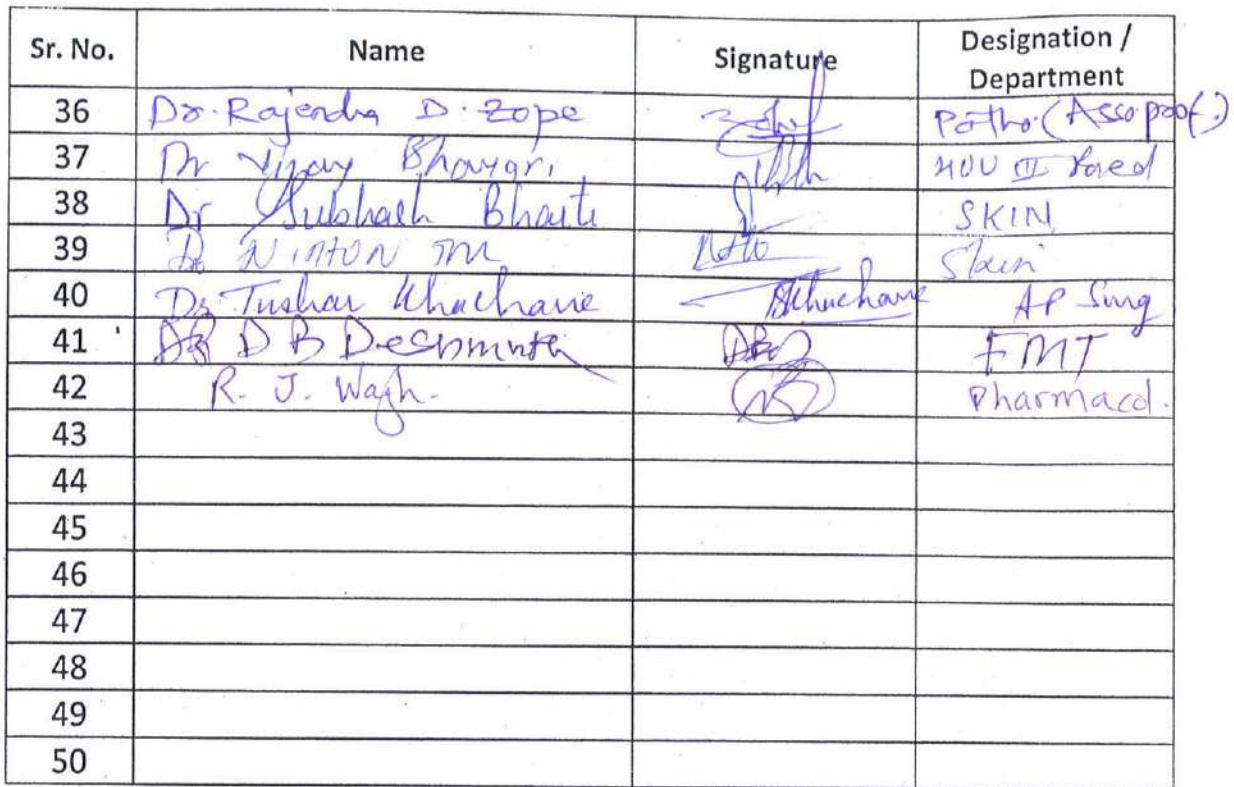 Sr. No. Name Signature Designation / Department
36 Dr. Rajendra D. Zope Patho. (Asso. prof.)
37 Dr Vijay HOU III
38 Dr Subhash SKIN
39 Dr Skin
40 Dr. Tushar Khachane Khachane AP Surg
41 DR D B Deshmukh FMT
42 R. J. Wagh. Pharmacol.
43
44
45
46
47
48
49
50